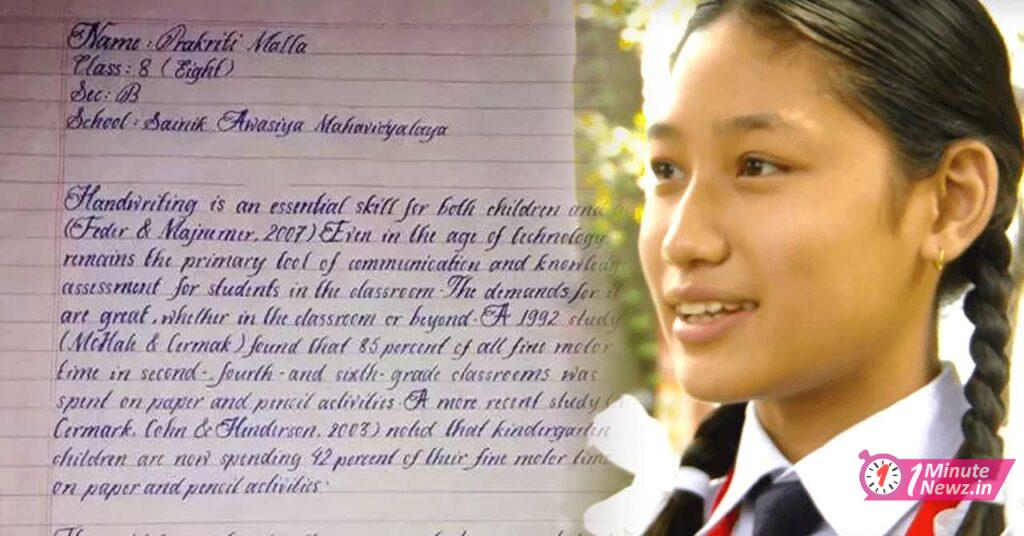 Name: Prakriti Malla
Class: 8 (Eight)
Sec: B
School: Sainik Awasiya Mahavidyalaya
Handwriting is an essential skill for both children and
(Feder & Majnemer, 2007) Even in the age of technology
remains the primary tool of communication and knowledg
assessment for students in the classroom. The demands for it
are great, whether in the classroom or beyond. A 1992 study
(McHale & Cermak) found that 85 percent of all fine motor
time in second-, fourth- and sixth-grade classrooms was
spent on paper and pencil activities. A more recent study
Cermark, Cohn & Henderson, 2003) noted that kindergarten
children are now spending 42 percent of their fine motor time
on paper and pencil activities.
1 Minute
Newz.in